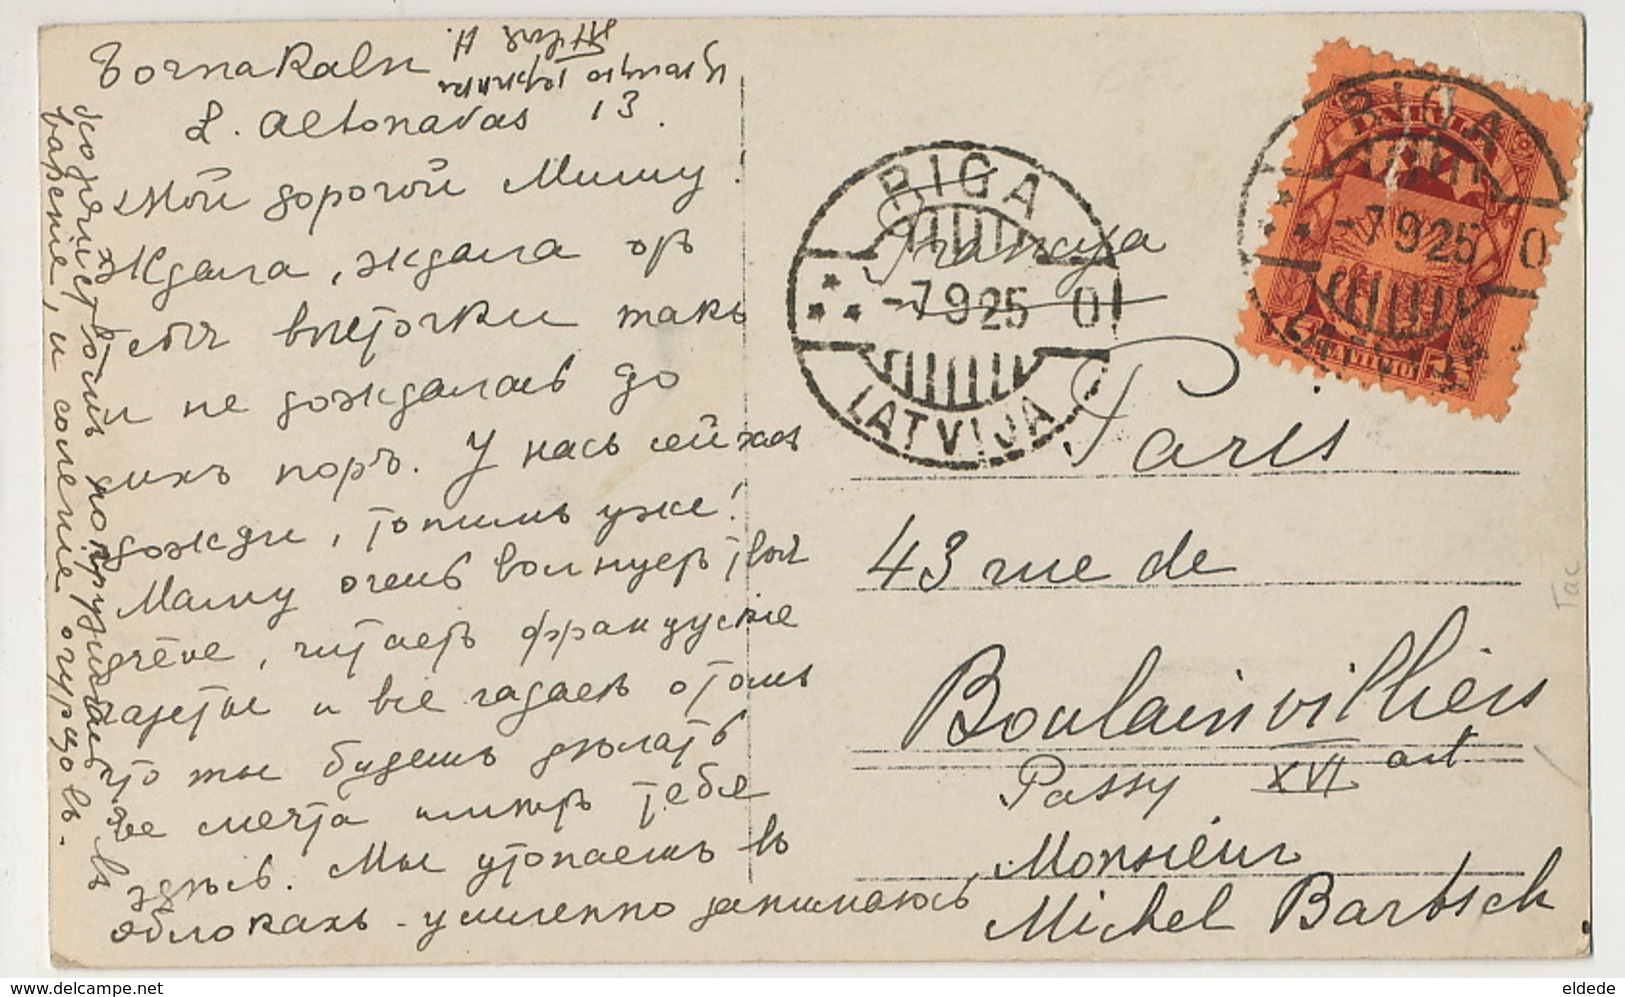 Tornakaln
L. Altonavas 13.
Мой дорогой Мишу!
Ждала, ждала отъ
тебя весточки такъ
и не дождалась до
сихъ поръ. У насъ сейчас
дожди, топимъ уже!
Маму очень волнуетъ твоя
, читаетъ французскіе
газеты и все гадаетъ о томъ
что ты будешь дѣлать
ее мечта имѣть тебя
здѣсь. Мы утопаемъ въ
облокахъ - усиленно занимаюсь
хозяйствомъ въ
вареніе, и соленіе огурцовъ.
RIGA
-7 9 25 0
LATVIJA
Francija
RIGA
-7 9 25 0
LATVIJA
Paris
43 rue de
Boulainvilliers
Passy XVI art
Monsieur
Michel Bartsch
Tac
www.delcampe.net
eldede